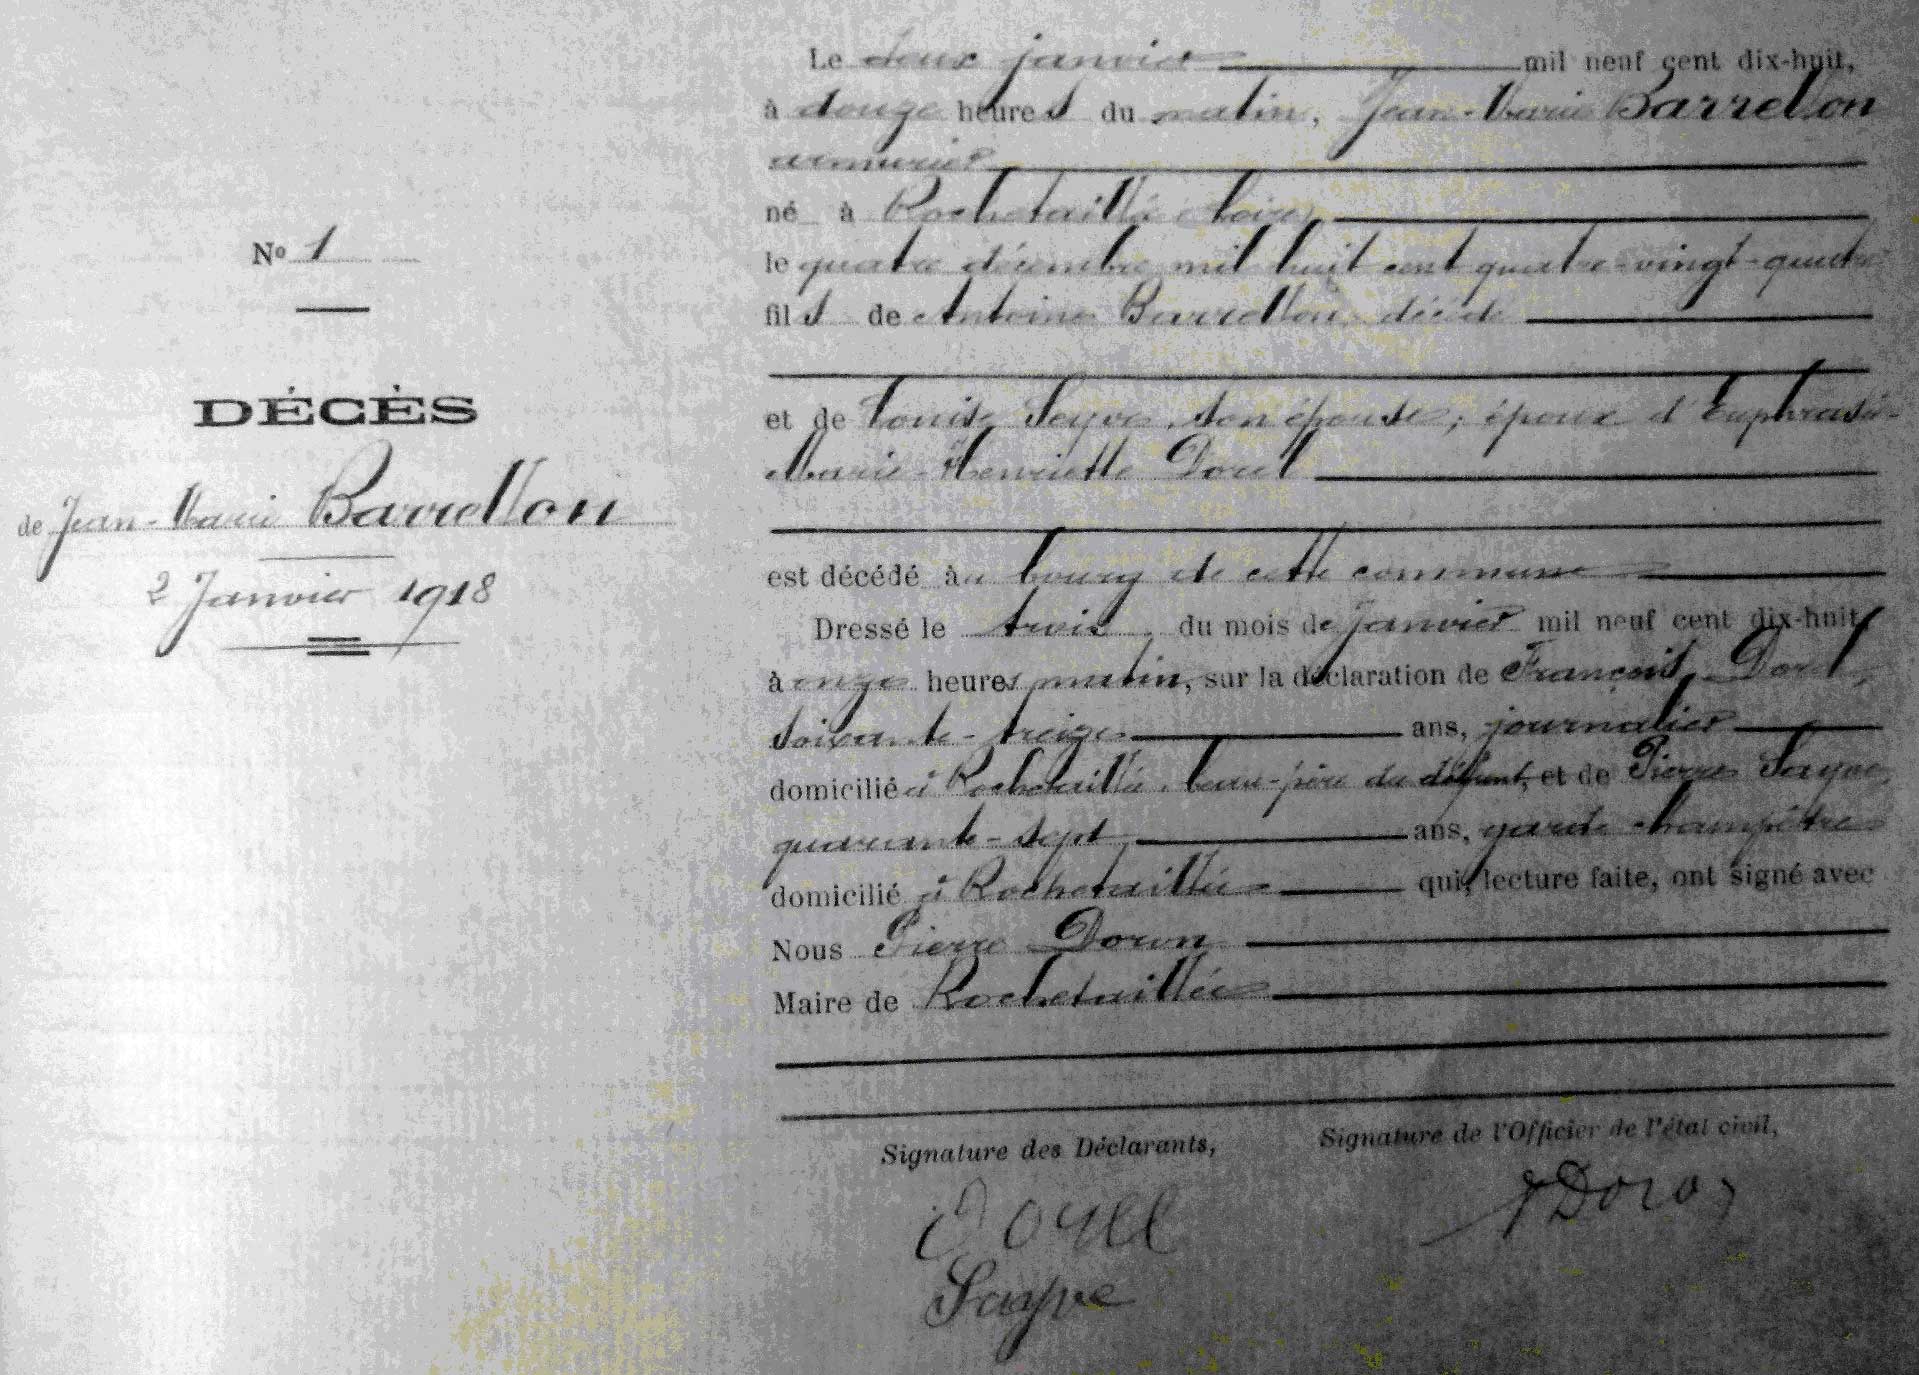 Nº 1
DÉCÈS
de Jean-Marie Barrellon
2 Janvier 1918
Le deux janvier mil neuf cent dix-huit,
à douze heures du matin, Jean-Marie Barrellon
armurier
né à Rochetaillée (Loire)
le quatre décembre mil huit cent quatre-vingt-quatre
fils de Antoine Barrellon, décédé
et de Louise Seyve, son épouse; époux d'Euphrasie-
Marie-Henriette Dorel
est décédé au bourg de cette commune
Dressé le trois du mois de janvier mil neuf cent dix-huit,
à onze heures matin, sur la déclaration de François Dorel,
soixante-treize ans, journalier
domicilié à Rochetaillée, beau-père du défunt, et de Pierre Sayve,
quarante-sept ans, garde-champêtre
domicilié à Rochetaillée qui, lecture faite, ont signé avec
Nous Pierre Doron
Maire de Rochetaillée
Signature des Déclarants, Signature de l'Officier de l'état civil,
Dorel
Sayve
Doron